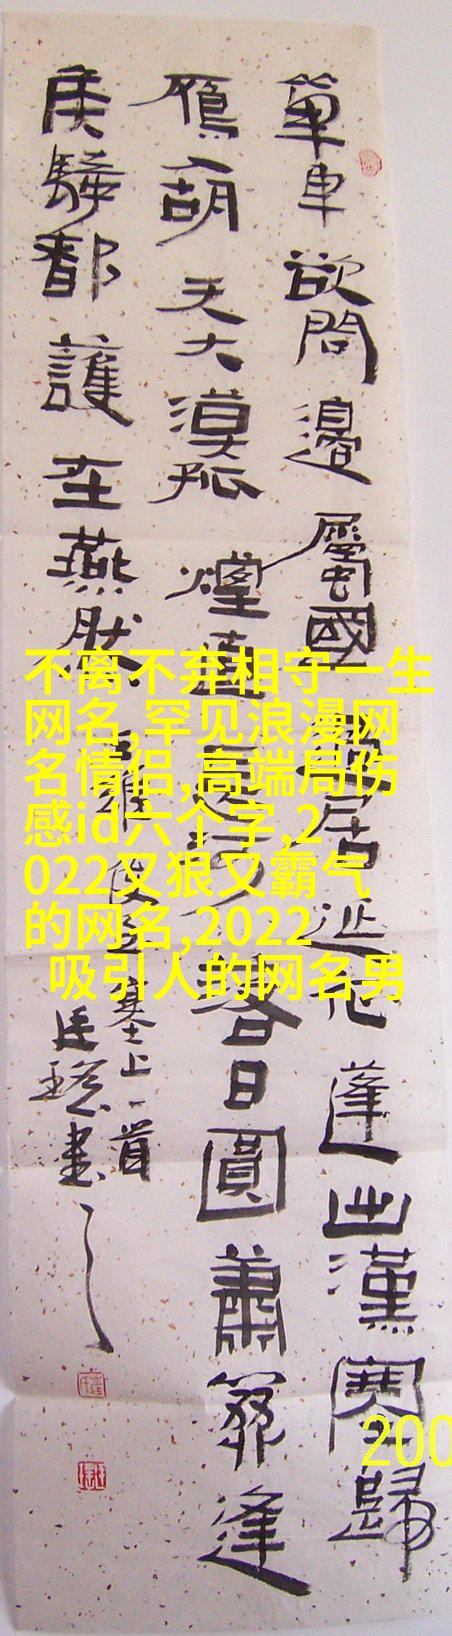 單車欲問邊屬國過居延征蓬出漢塞歸
鴈入胡天大漠孤煙直長河落日圓蕭關逢
候騎都護在燕然
王維使至塞上一首
書
不离不弃相守一生
网名,罕见浪漫网
名情侣,高端局伤
感id六个字,2
022又狠又霸气
的网名,2022
吸引人的网名男
200